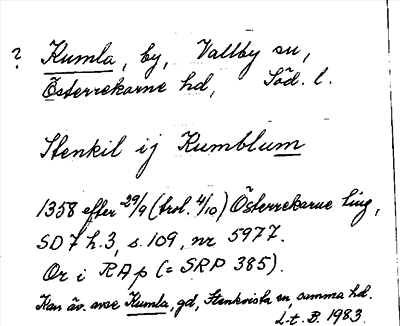 ? Kumla, by, Vallby sn,
Österrekarne hd, Söd. l.
Stenkil ij Kumblum
1358 efter 29/9 (trol. 4/10) Österrekarne ting,
SD 7 h.3, s. 109, nr 5977.
Or i RAp (= SRP 385).
Kan äv. avse Kumla, gd, Stenkvista sn, samma hd.
L-t. B. 1983.